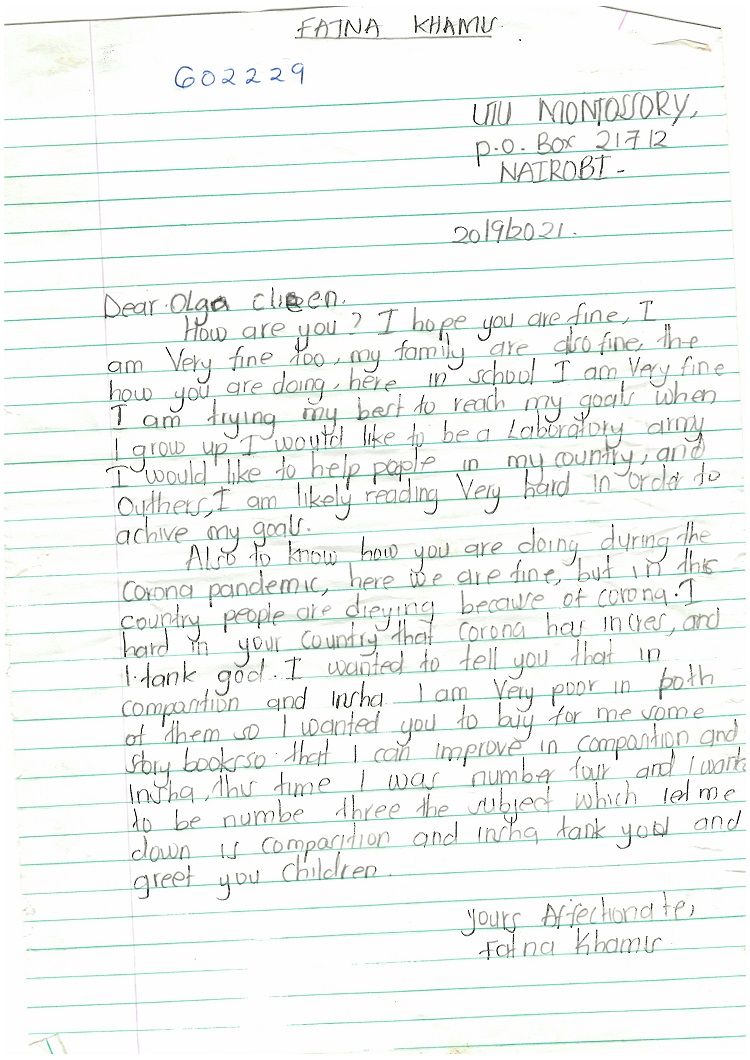 FATNA KHAMIS
602229
UTU MONTOSSORY,
P.O. Box 21712
NAIROBI-
20/9/2021.
Dear Olga cleen.
How are you? I hope you are fine, I
am Very fine too, my family are also fine, the
how you are doing, here in school I am Very fine
I am trying my best to reach my goals when
I grow up I would like to be a Laboratory army
I would like to help pople in my country, and
Outhers, I am likely reading Very hard in order to
achive my goals.
Also to know how you are doing during the
Corona pandemic, here we are fine, but in this
country people are dieying because of corona. I
hard in your country that corona has incres, and
I tank god. I wanted to tell you that in
compasition and insha I am Very poor in both
of them so I wanted you to buy for me some
story books so that I can improve in compasition and
Insha, this time I was number four and I want
to be numbe three the subject which let me
down is compasition and insha tank you and
greet you children.
Yours Affectionate,
Fatna Khamis